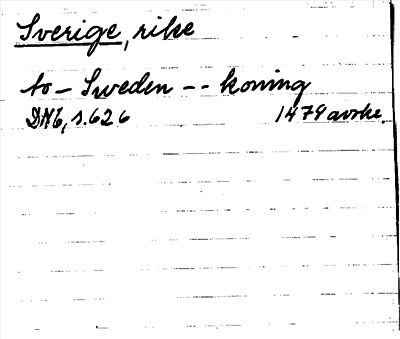 Sverige, rike
to - Sweden -- koning
DN6, s. 626 1474 avskr.